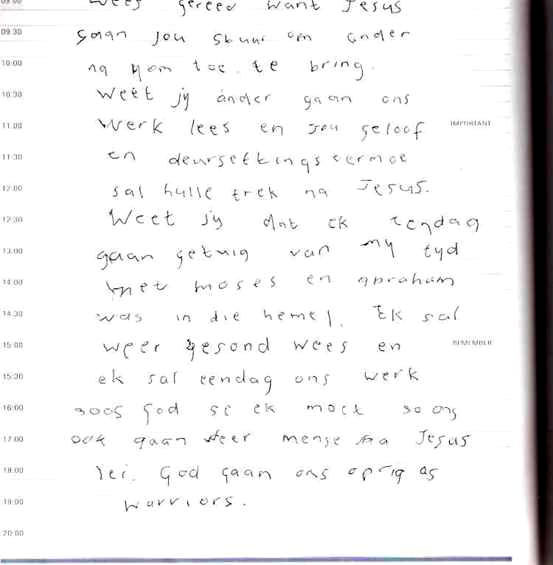 09:00 Wees gereed want Jesus
09:30 gaan jou stuur om ander
10:00 na Hom toe te bring.
10:30 Weet jy ander gaan ons
11:00 Werk lees en jou geloof IMPORTANT
11:30 en deursettingsvermoe
12:00 sal hulle trek na Jesus.
12:30 Weet jy dat ek eendag
13:00 gaan getuig van my tyd
14:00 met Moses en Abraham
14:30 was in die hemel. Ek sal
15:00 weer gesond wees en REMEMBER
15:30 ek sal eendag ons werk
16:00 soos God sê ek moet so ons
17:00 ook gaan meer mense na Jesus
18:00 lei. God gaan ons oprig as
19:00 warriors.
20:00